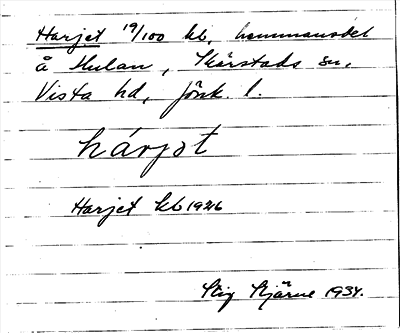 Harjet 19/100 kb, hemmansdel
å Hulan, Skärstads sn,
Vista hd, Jönk. l.
hárjət
Harjet kb 1926
Stig Stjärne 1934.